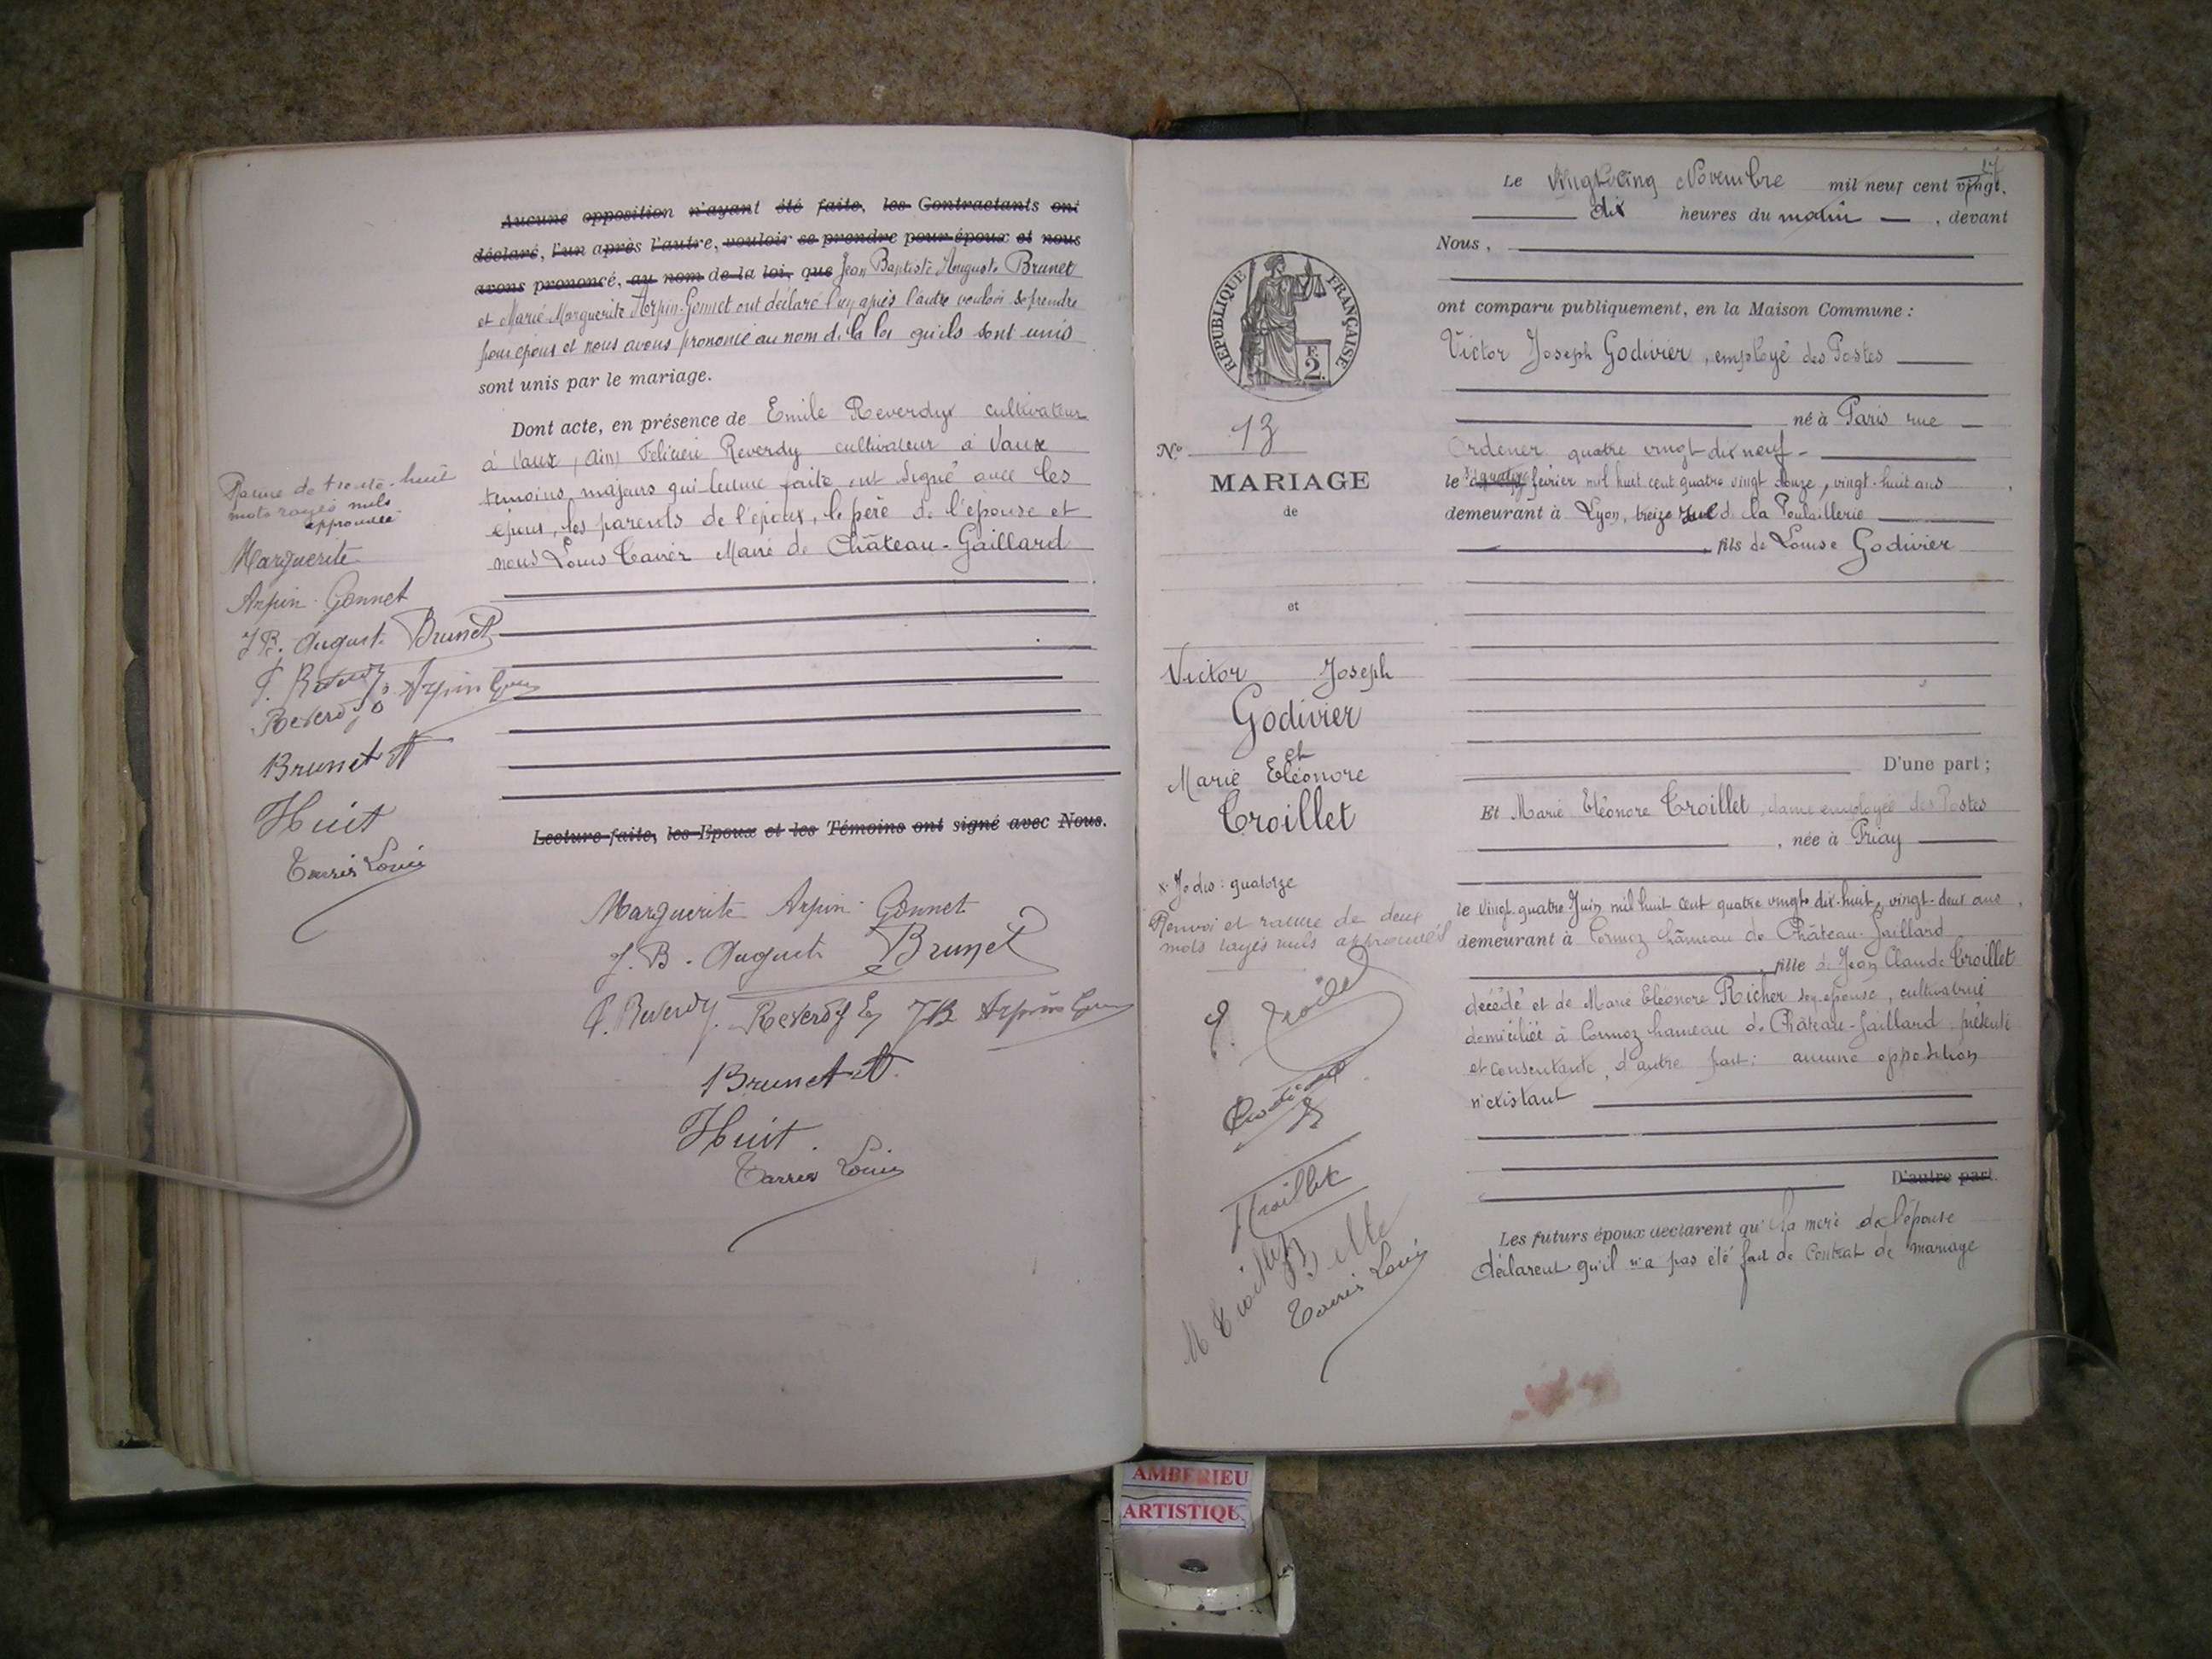 Aucune opposition n'ayant été faite, les Contractants ont
déclaré, l'un après l'autre, vouloir se prendre pour époux et nous
avons prononcé, au nom de la loi, que Jean Baptiste Auguste Brunet
et Marie Marguerite Arpin-Gonnet ont déclaré l'un après l'autre vouloir se prendre
pour époux et nous avons prononcé au nom de la loi qu'ils sont unis
sont unis par le mariage.
Dont acte, en présence de Emile Reverdy cultivateur
à Vaux (Ain) Felicien Reverdy cultivateur à Vaux
temoins majeurs qui lecture faite ont signé avec les
époux, les parents de l'époux, le père de l'épouse et
nous Louis Maire de Château-Gaillard
Rature de trente-huit
mots rayés nuls
approuvée
Marguerite
Arpin-Gonnet
J.B. Auguste Brunet
F. Reverdy Arpin
Reverdy
Brunet
Huit
Louis
Lecture faite, les Epoux et les Témoins ont signé avec Nous.
Marguerite Arpin-Gonnet
J. B. Auguste Brunet
F. Reverdy. Reverdy E. JB Arpin
Brunet A.
Huit.
Louis
Le vingt cinq Novembre mil neuf cent vingt.
17
dix heures du matin, devant
Nous,
ont comparu publiquement, en la Maison Commune :
Victor Joseph Godivier, employé des Postes
né à Paris rue
Ordener quatre vingt dix neuf
le février mil huit cent quatre vingt douze, vingt-huit ans
demeurant à Lyon, treize rue de la Poulaillerie
fils de Louise Godivier
D'une part ;
Et Marie Eléonore Troillet, dame employée des Postes
, née à Priay
le vingt quatre Juin mil huit cent quatre vingt dix-huit, vingt-deux ans,
demeurant à Cormoz hameau de Château-Gaillard
fille de Jean Claude Troillet
décédé et de Marie Eléonore Richer son épouse, cultivatrice
domiciliée à Cormoz hameau de Château-Gaillard, présente
et consentante, d'autre part ; aucune opposition
n'existant
D'autre part.
Les futurs époux déclarent qu' la mère de l'épouse
déclarent qu'il n'a pas été fait de contrat de mariage
REPUBLIQUE FRANÇAISE
F.
2.
No 13
MARIAGE
de
et
Victor Joseph
Godivier
et
Marie Eléonore
Troillet
x Je dis : quatorze
Renvoi et rature de deux
mots rayés nuls approuvés
Troillet
Louis
AMBERIEU
ARTISTIQUE